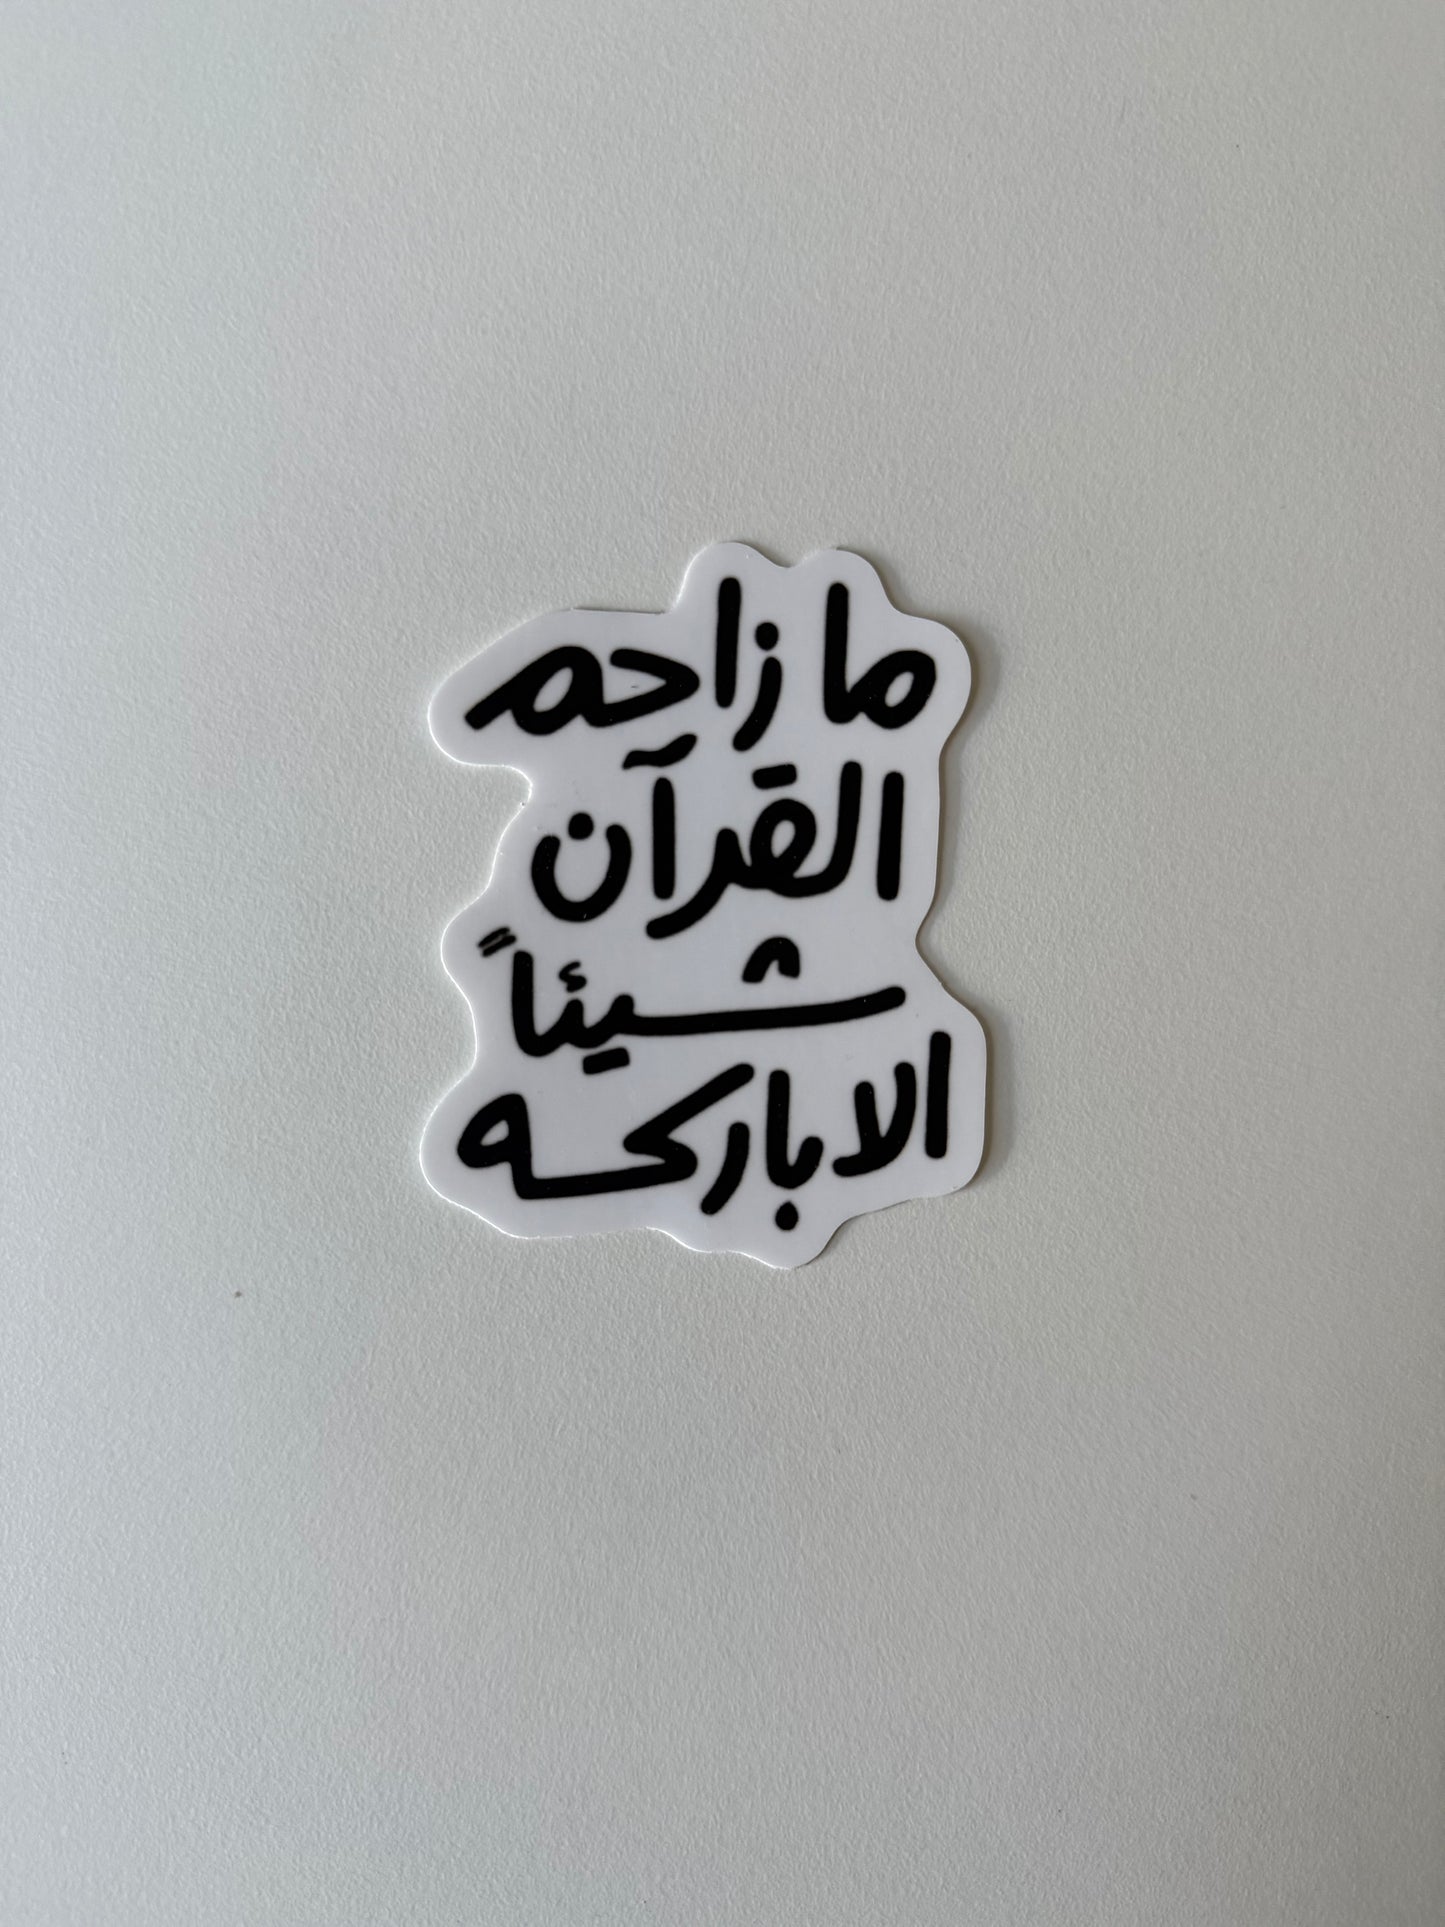 ما زاحم
القرآن
شيئاً
الا باركه